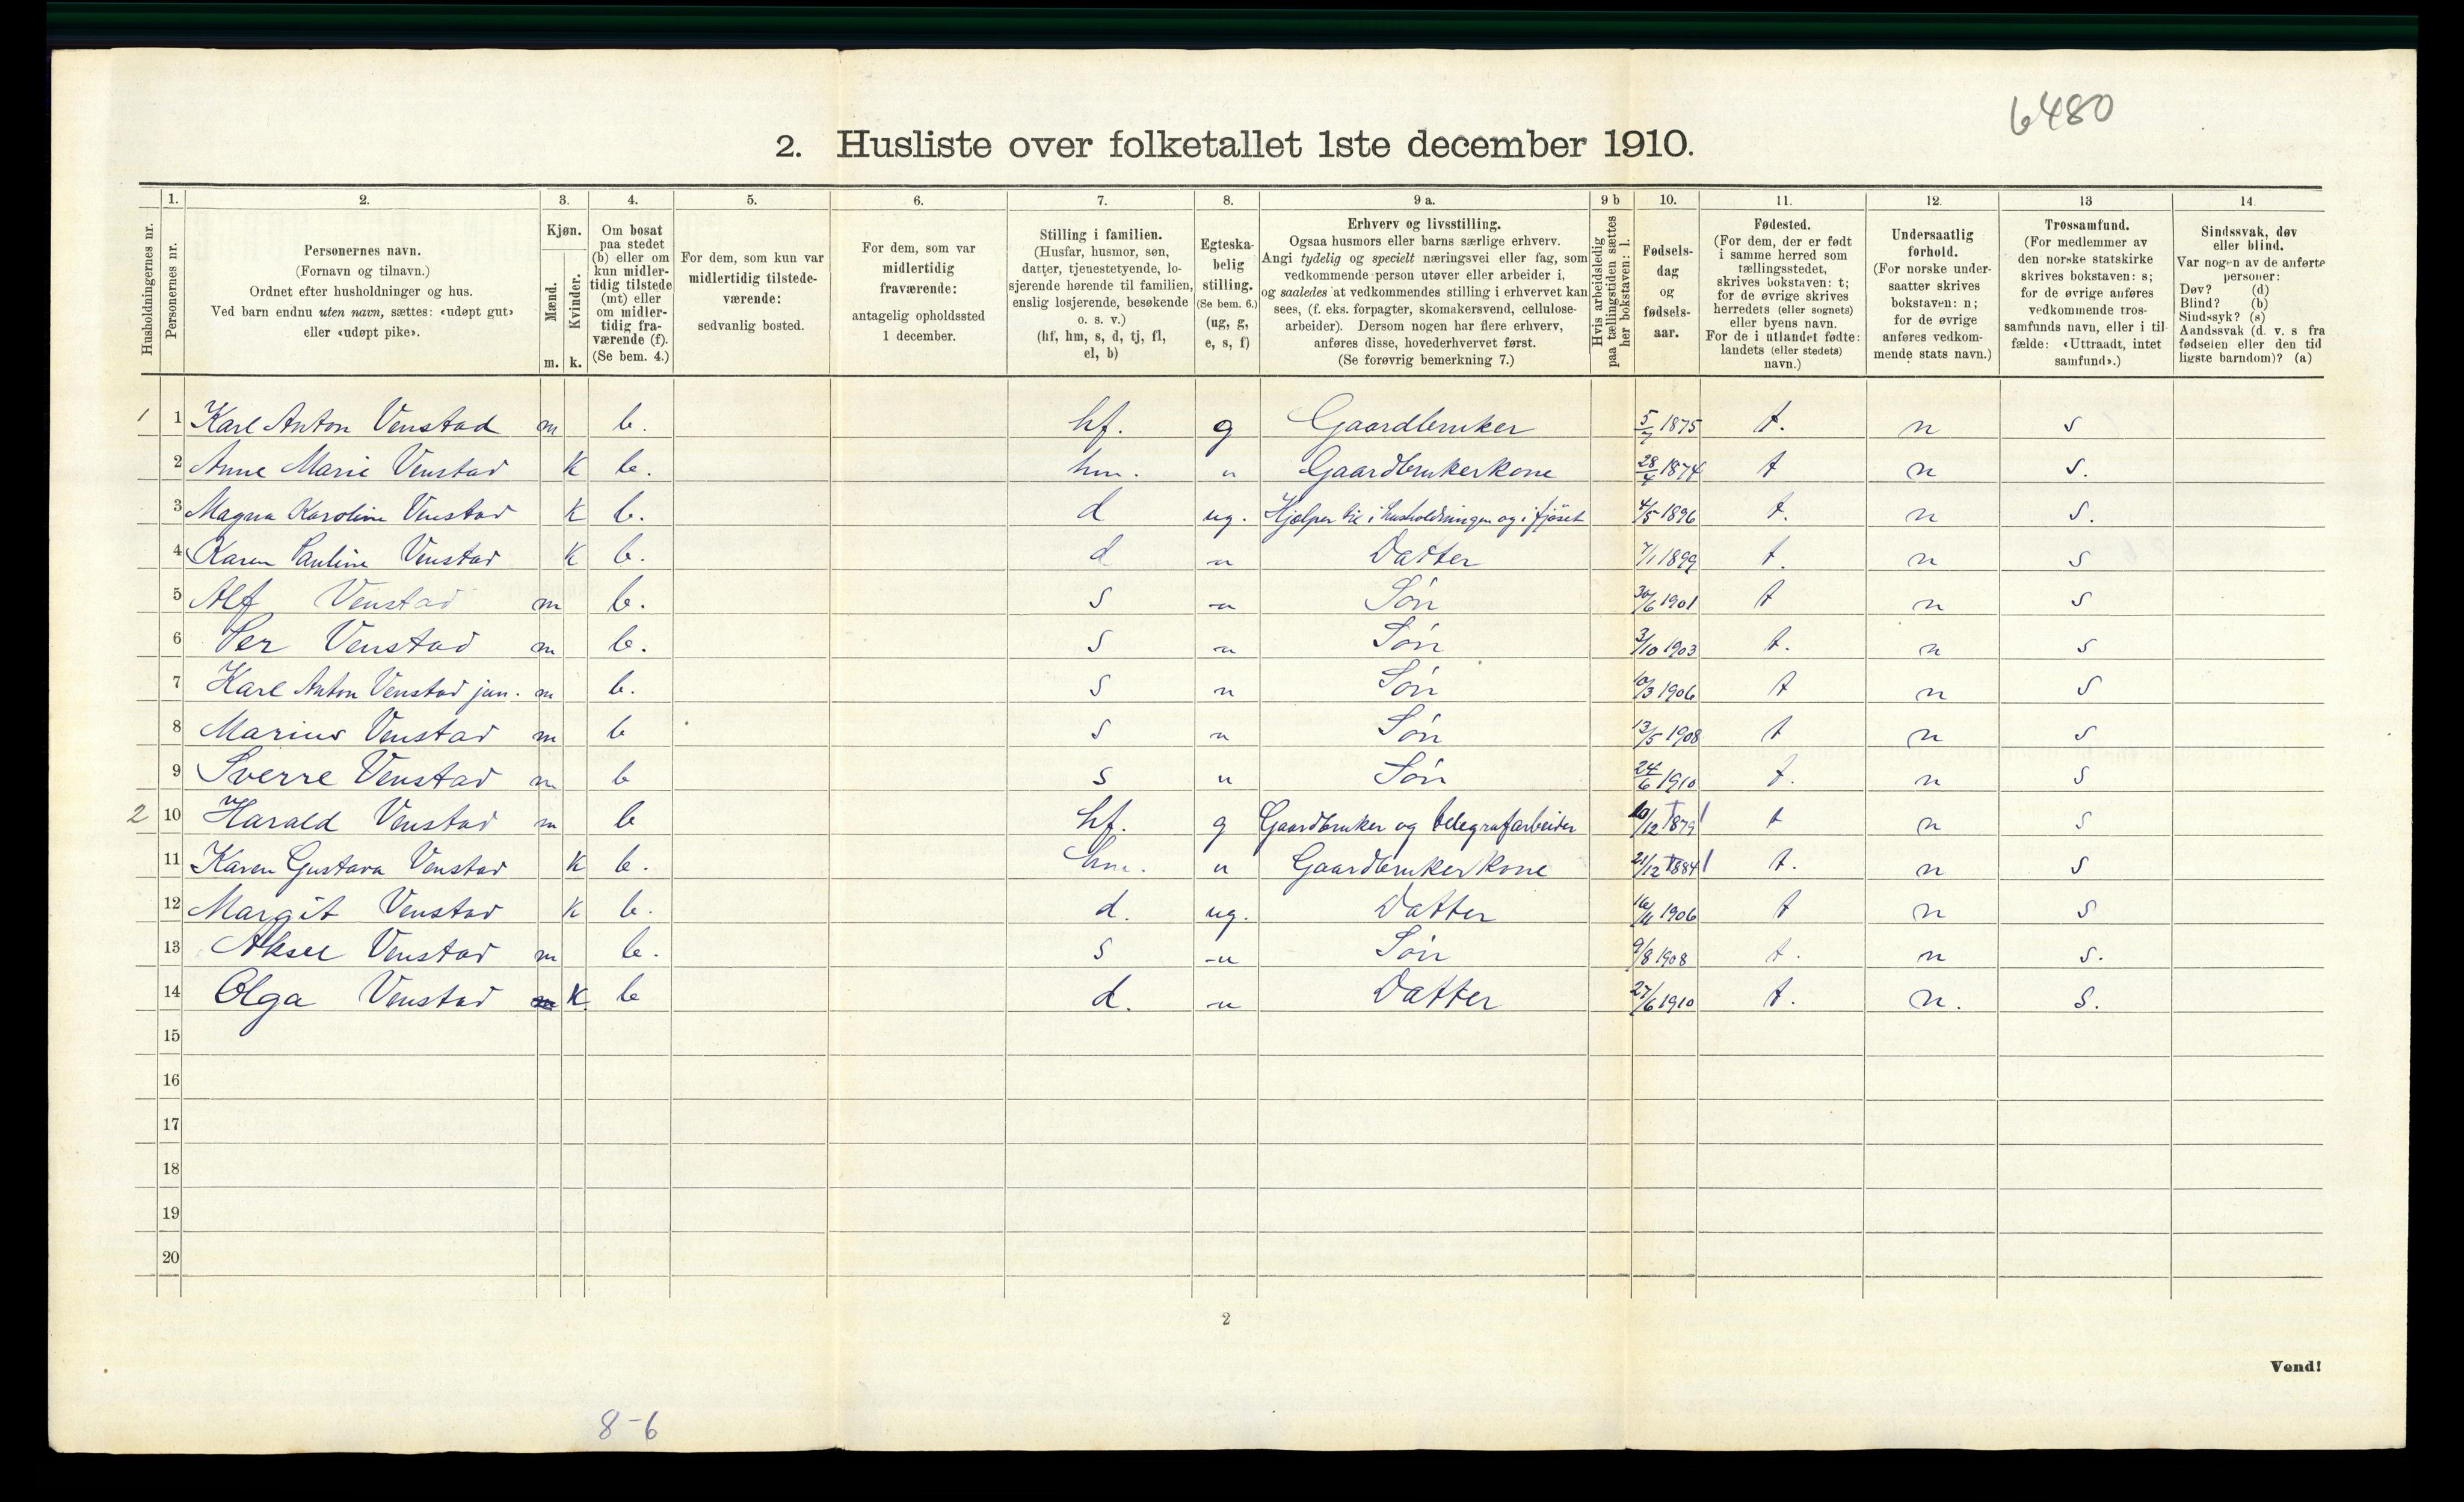 6480
2. Husliste over folketallet 1ste december 1910.
Husholdningernes nr.
1. Personernes nr.
2. Personernes navn. (Fornavn og tilnavn.) Ordnet efter husholdninger og hus. Ved barn endnu uten navn, sættes: «udøpt gut» eller «udøpt pike».
3. Kjøn. Mænd. m. Kvinder. k.
4. Om bosat paa stedet (b) eller om kun midlertidig tilstede (mt) eller om midlertidig fraværende (f). (Se bem. 4.)
5. For dem, som kun var midlertidig tilstedeværende: sedvanlig bosted.
6. For dem, som var midlertidig fraværende: antagelig opholdssted 1 december.
7. Stilling i familien. (Husfar, husmor, søn, datter, tjenestetyende, losjerende hørende til familien, enslig losjerende, besøkende o. s. v.) (hf, hm, s, d, tj, fl, el, b)
8. Egteskabelig stilling. (Se bem. 6.) (ug, g, e, s, f)
9 a. Erhverv og livsstilling. Ogsaa husmors eller barns særlige erhverv. Angi tydelig og specielt næringsvei eller fag, som vedkommende person utøver eller arbeider i, og saaledes at vedkommendes stilling i erhvervet kan sees, (f. eks. forpagter, skomakersvend, cellulosearbeider). Dersom nogen har flere erhverv, anføres disse, hovederhvervet først. (Se forøvrig bemerkning 7.)
9 b Hvis arbeidsledig paa tællingstiden sættes her bokstaven: l.
10. Fødselsdag og fødselsaar.
11. Fødested. (For dem, der er født i samme herred som tællingsstedet, skrives bokstaven: t; for de øvrige skrives herredets (eller sognets) eller byens navn. For de i utlandet fødte: landets (eller stedets) navn.)
12. Undersaatlig forhold. (For norske undersaatter skrives bokstaven: n; for de øvrige anføres vedkommende stats navn.)
13 Trossamfund. (For medlemmer av den norske statskirke skrives bokstaven: s; for de øvrige anføres vedkommende trossamfunds navn, eller i tilfælde: «Uttraadt, intet samfund».)
14. Sindssvak, døv eller blind. Var nogen av de anførte personer: Døv? (d) Blind? (b) Sindssyk? (s) Aandssvak (d. v. s fra fødselen eller den tidligste barndom)? (a)
1 1 Karl Anton Venstad m b. hf. g Gaardbruker 5/7 1875 t. n s
2 Anne Marie Venstad K b. hm. " Gaardbrukerkone 28/4 1874 t n s.
3 Magna Karoline Venstad K b. d ug. Hjelper til i husholdningen og i fjöset 4/5 1896 t. n s.
4 Karen Pauline Venstad K b. d " Datter 7/1 1899 t. n s
5 Alf Venstad m b. s " Sön 30/6 1901 t n s
6 Per Venstad m b. s " Sön 3/10 1903 t. n s
7 Karl Anton Venstad jun. m b. s " Sön 10/3 1906 t n s
8 Marius Venstad m b s " Sön 13/5 1908 t n s
9 Sverre Venstad m b s " Sön 24/6 1910 t. n s
2 10 Harald Venstad m b hf. g Gaardbruker og telegrafarbeider 10/12 1879 t n s
11 Karen Gustava Venstad K b. hm. " Gaardbrukerkone 21/12 1884 t. n s
12 Margit Venstad K b. d. ug. Datter 1906 t n s
13 Aksel Venstad m b. s " Sön 9/8 1908 t. n s.
14 Olga Venstad m K b d. " Datter 27/6 1910 t. n. s.
15
16
17
18
19
20
2
Vend!
8-6